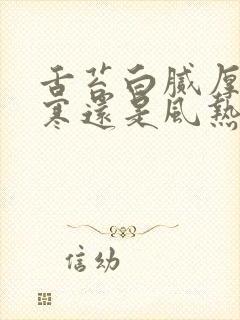 舌苔白膩厚
寒還是風熱
信幼